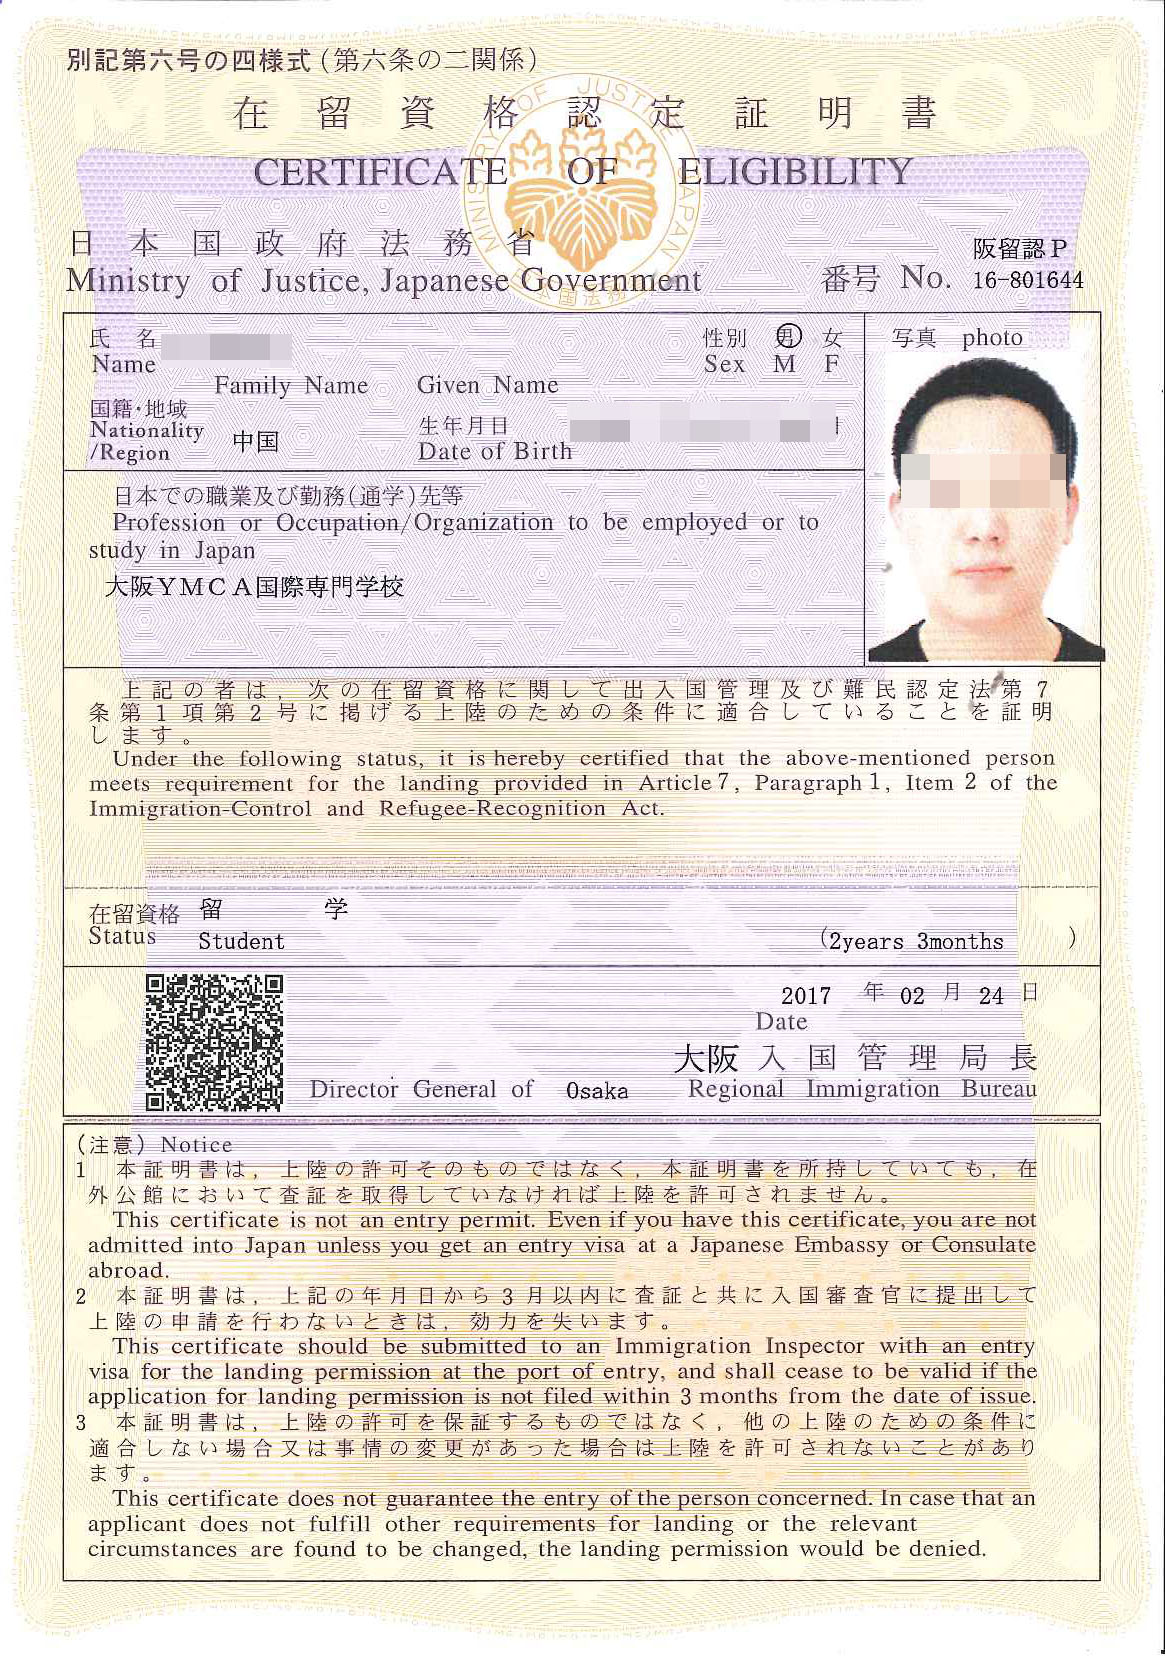 別記第六号の四様式(第六条の二関係)
在留資格認定証明書
CERTIFICATE OF ELIGIBILITY
MINISTRY OF JUSTICE JAPAN
日本国政府法務省
阪留認P
Ministry of Justice, Japanese Government 番号 No. 16-801644
氏名 性別 男 女 写真 photo
Name Sex M F
Family Name Given Name
国籍・地域 生年月日
Nationality 中国
/Region Date of Birth
日本での職業及び勤務(通学)先等
Profession or Occupation/Organization to be employed or to
study in Japan
大阪YMCA国際専門学校
上記の者は, 次の在留資格に関して出入国管理及び難民認定法第7
条第1項第2号に掲げる上陸のための条件に適合していることを証明
します。
Under the following status, it is hereby certified that the above-mentioned person
meets requirement for the landing provided in Article 7, Paragraph 1, Item 2 of the
Immigration-Control and Refugee-Recognition Act.
在留資格 留学
Status Student (2years 3months )
2017 年 02 月 24 日
Date
大阪入国管理局長
Director General of Osaka Regional Immigration Bureau
(注意) Notice
1 本証明書は, 上陸の許可そのものではなく, 本証明書を所持していても, 在
外公館において査証を取得していなければ上陸を許可されません。
This certificate is not an entry permit. Even if you have this certificate, you are not
admitted into Japan unless you get an entry visa at a Japanese Embassy or Consulate
abroad.
2 本証明書は, 上記の年月日から3月以内に査証と共に入国審査官に提出して
上陸の申請を行わないときは, 効力を失います。
This certificate should be submitted to an Immigration Inspector with an entry
visa for the landing permission at the port of entry, and shall cease to be valid if the
application for landing permission is not filed within 3 months from the date of issue.
3 本証明書は, 上陸の許可を保証するものではなく, 他の上陸のための条件に
適合しない場合又は事情の変更があった場合は上陸を許可されないことがあり
ます。
This certificate does not guarantee the entry of the person concerned. In case that an
applicant does not fulfill other requirements for landing or the relevant
circumstances are found to be changed, the landing permission would be denied.